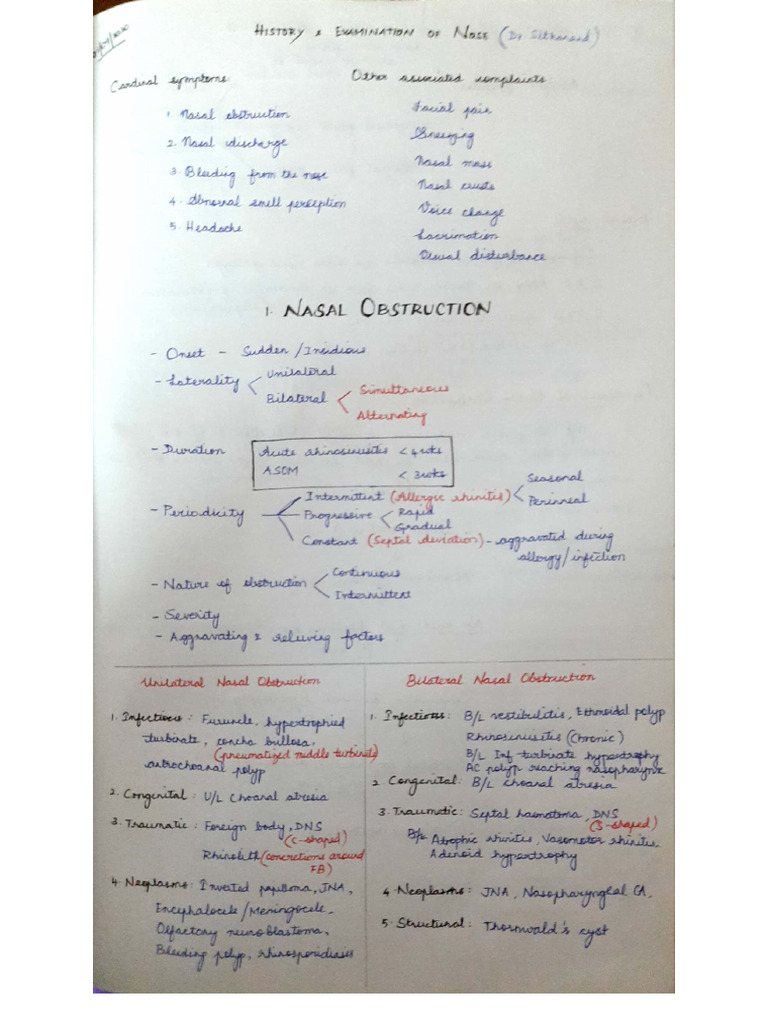 HISTORY & EXAMINATION OF NOSE (Dr Sithanand)
Cardinal symptoms
1. Nasal obstruction
2. Nasal discharge
3. Bleeding from the nose
4. Abnormal smell perception
5. Headache
Other associated complaints
Facial pain
Sneezing
Nasal mass
Nasal crusts
Voice change
Lacrimation
Visual disturbance
1. NASAL OBSTRUCTION
- Onset - Sudden / Insidious
- Laterality
Unilateral
Bilateral
Simultaneous
Alternating
- Duration
Acute rhinosinusitis < 4 wks
ASOM < 3 wks
- Periodicity
Intermittent (Allergic rhinitis)
Seasonal
Perinneal
Progressive
Rapid
Gradual
Constant (Septal deviation) - aggravated during
allergy/infection
- Nature of obstruction
Continuous
Intermittent
- Severity
- Aggravating & relieving factors
Unilateral Nasal Obstruction
1. Infectious: Furuncle, hypertrophied
turbinate, concha bullosa,
(pneumatized middle turbinate)
antrochoanal polyp
2. Congenital: U/L Choanal atresia
3. Traumatic: Foreign body, DNS
(C-shaped)
Rhinolith (concretions around
FB)
4. Neoplasms: Inverted papilloma, JNA,
Encephalocele/Meningocele,
Olfactory neuroblastoma,
Bleeding polyp, rhinosporidiosis
Bilateral Nasal Obstruction
1. Infectious: B/L vestibulitis, Ethmoidal polyp
Rhinosinusitis (Chronic)
B/L Inf turbinate hypertrophy
AC polyp reaching nasopharynx
2 Congenital: B/L choanal atresia
3. Traumatic: Septal haematoma, DNS
(S-shaped)
Atrophic rhinitis, Vasomotor rhinitis,
Adenoid hypertrophy
4 Neoplasms: JNA, Nasopharyngeal CA,
5. Structural: Thornwald's cyst